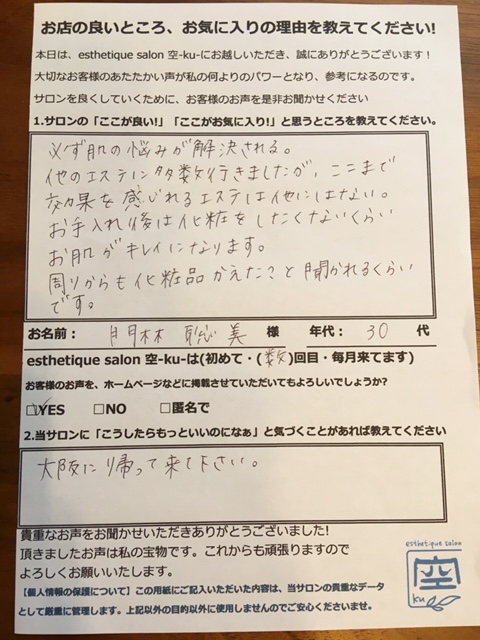 お店の良いところ、お気に入りの理由を教えてください!
本日は、esthetique salon 空-ku-にお越しいただき、誠にありがとうございます！
大切なお客様のあたたかい声が私の何よりのパワーとなり、参考になるのです。
サロンを良くしていくために、お客様のお声を是非お聞かせください
1.サロンの「ここが良い!」「ここがお気に入り!」と思うところを教えてください。
必ず肌の悩みが解決される。
他のエステに多数行きましたが、ここまで
効果を感じれるエステは他にはない。
お手入れ後は化粧をしたくないくらい
お肌がキレイになります。
周りからも化粧品かえたこと聞かれるくらい
です。
お名前： 聡美 様 年代： 30 代
esthetique salon 空-ku-は(初めて・(数)回目・毎月来てます)
お客様のお声を、ホームページなどに掲載させていただいてもよろしいでしょうか?
☑YES □NO □匿名で
2.当サロンに「こうしたらもっといいのになぁ」と気づくことがあれば教えてください
大阪に帰って来て下さい。
貴重なお声をお聞かせいただきありがとうございました!
頂きましたお声は私の宝物です。これからも頑張りますので
よろしくお願いいたします。
【個人情報の保護について】この用紙にご記入いただいた内容は、当サロンの貴重なデータ
として厳重に管理します。上記以外の目的以外に使用しませんのでご安心くださいませ。
esthetique salon
空
ku